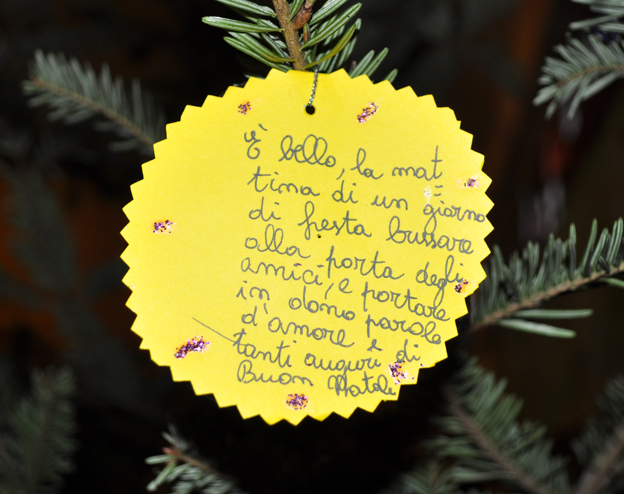 È bello, la mat
tina di un giorno
di festa bussare
alla porta degli
amici, e portare
in dono parole
d'amore e
tanti auguri di
Buon Natale